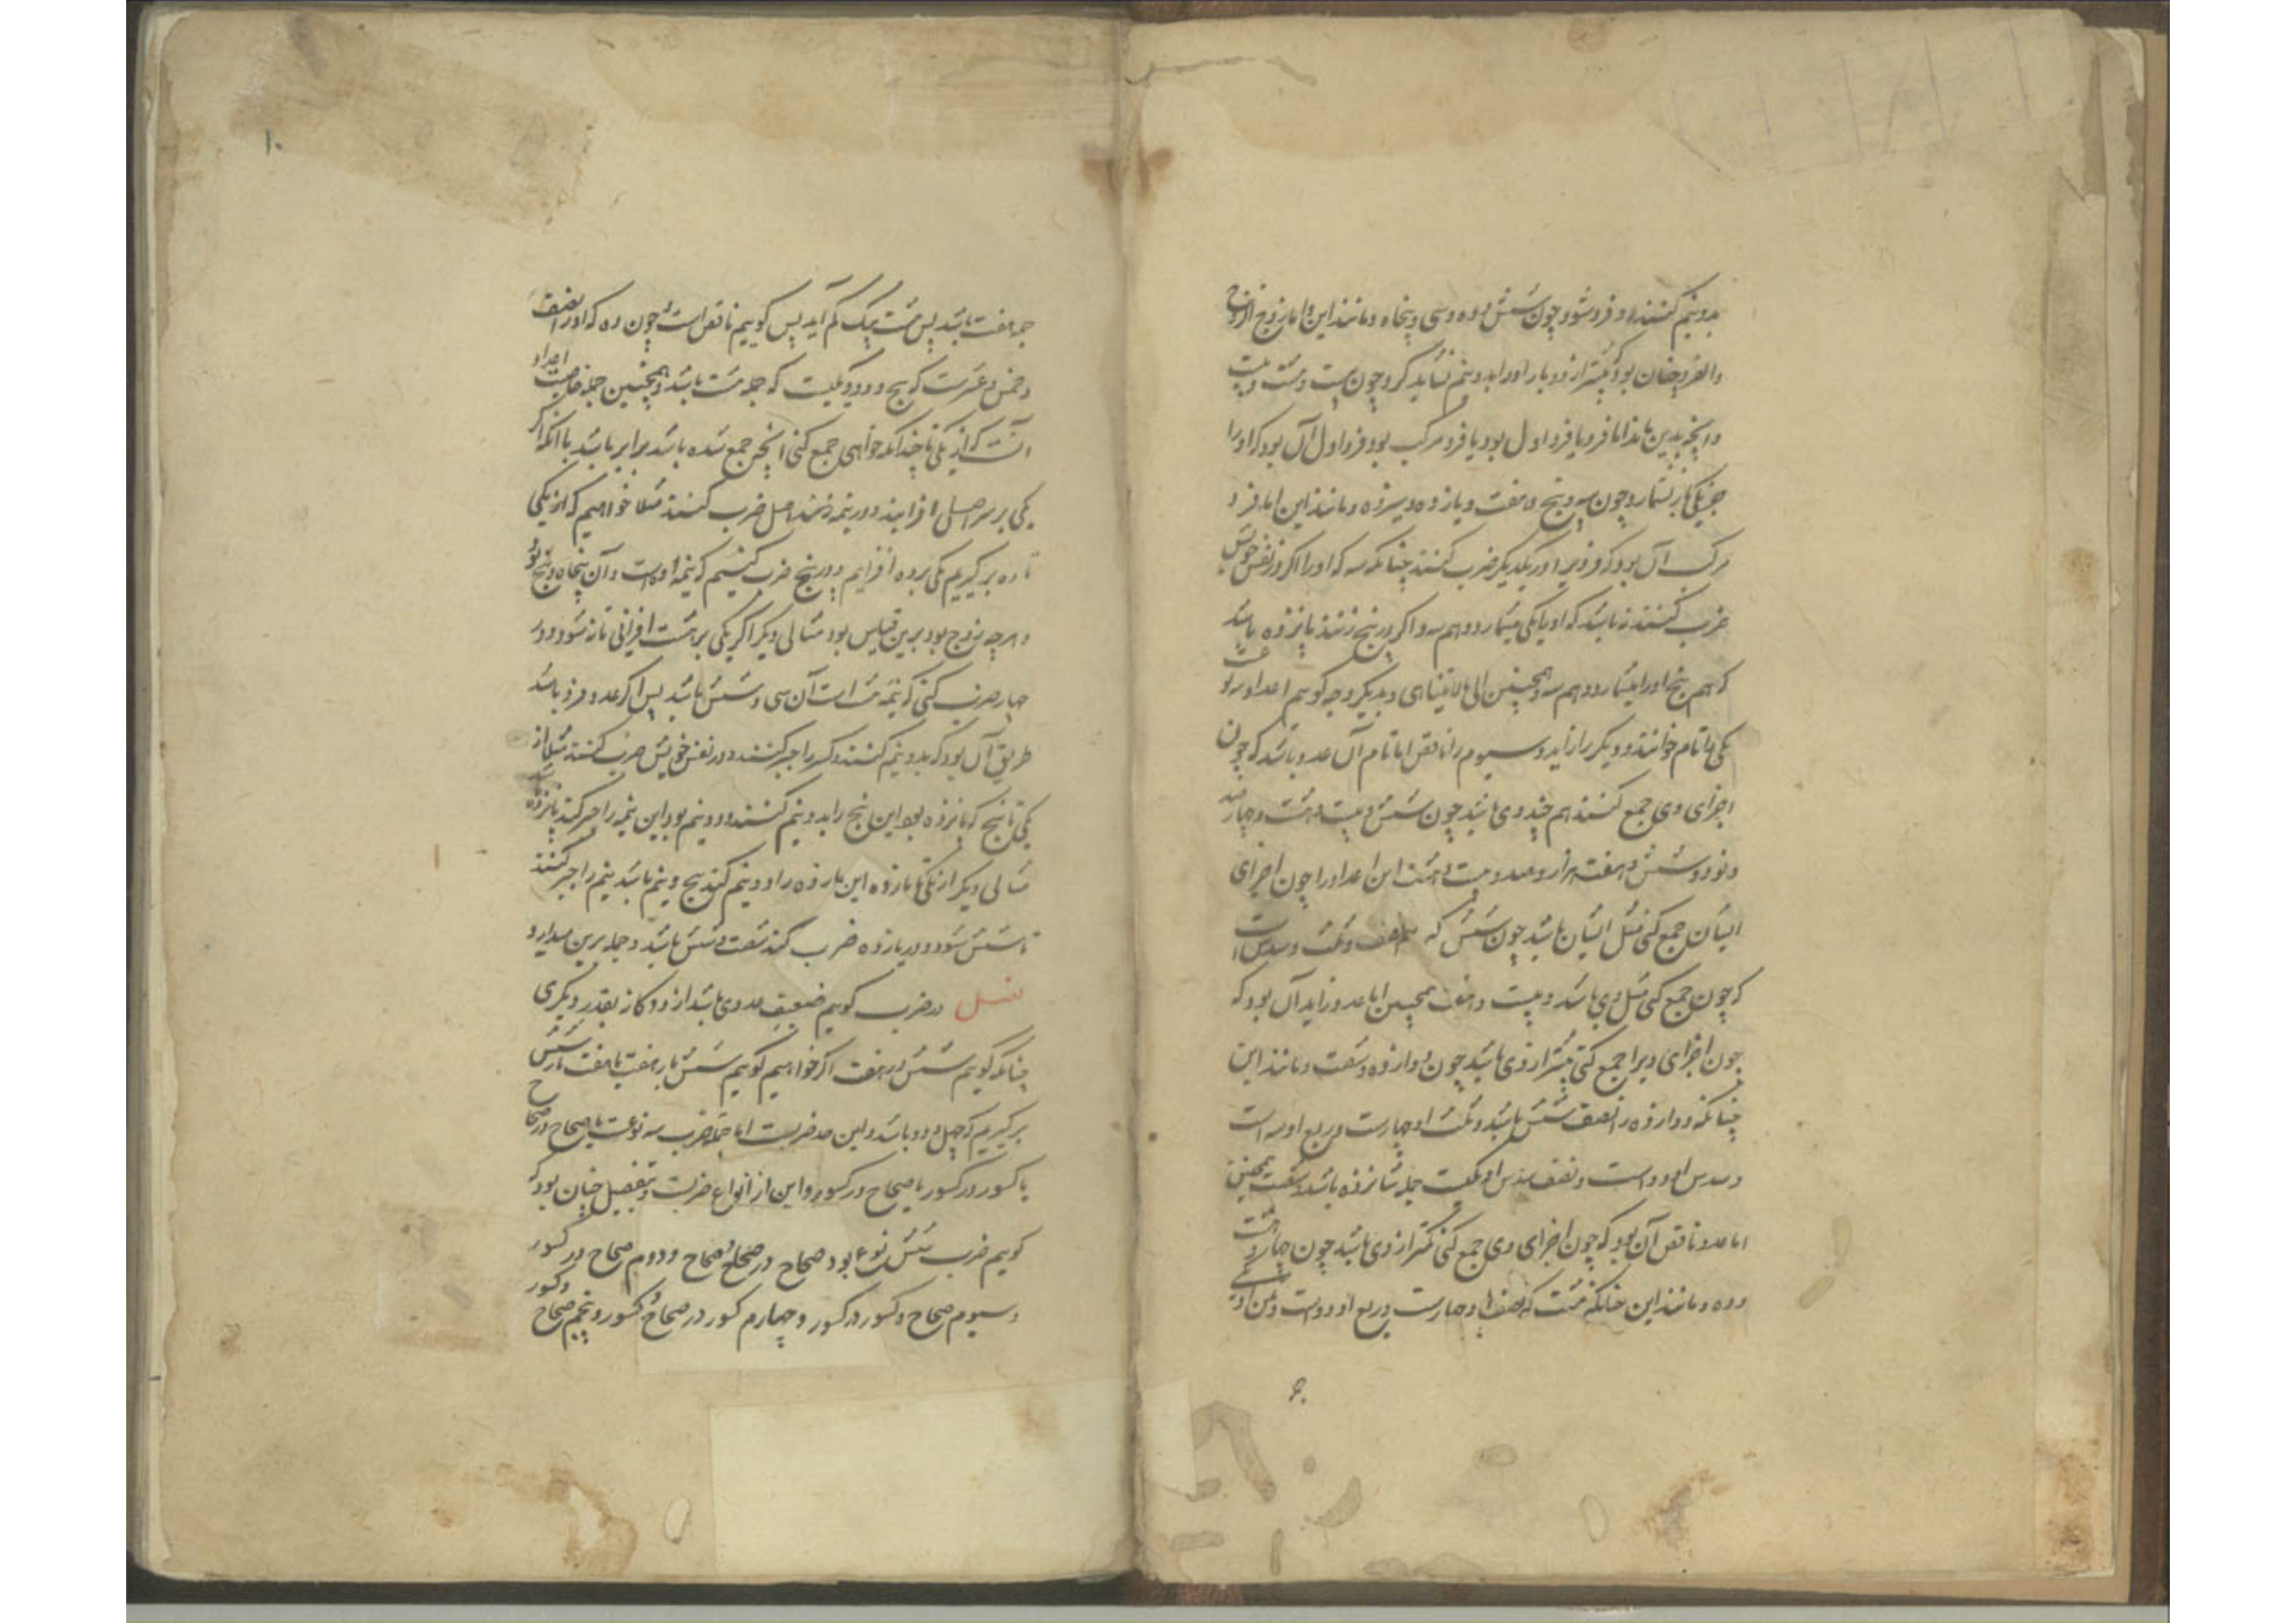 بدو نیم کنند و فرد شود چون شش و ده و سی و پنجاه و مانند این و اما زوج الزوج
والفرد چنان بود که بیشتر از دو بار او را بدو نیم شاید کرد چون بیست و شست و بیست
و آنچه بدین ماند اما فرد یا فرد اول بود یا فرد مرکب بود فرد اول آن بود که او را
جز یکی نشمارد چون سه و پنج و هفت و یازده و سیزده و مانند این اما فرد
مرکب آن بود که فردیرا در یکدیگر ضرب کنند چنانکه سه که او را اگر در نفس خویش
ضرب کنند نه باشد که او را یکی میشمارد و هم سه و اگر در پنج زنند پانزده باشد
که هم پنج او را میشمارد و هم سه و همچنین الی مالایتناهی و بدیگر وجه گوییم اعداد بر سه نوعست
یکی را تام خوانند و دیگر را زاید و سیوم را ناقص اما تام آن عدد باشد که چون
اجزای وی جمع کنند هم چند وی باشد چون شش و بیست و هشت و چهارصد
و نود و شش و هفت هزار و صد و بیست و هشت این اعداد را چون اجزای
ایشان جمع کنی مثل ایشان باشد چون شش که نصف و ثلث و سدس است
که چون جمع کنی مثل وی باشد و بیست و هشت همچنین اما عدد زاید آن بود که
چون اجزای ویرا جمع کنی بیشتر از وی باشد چون دوازده و شصت و مانند این
چنانکه دوازده را نصف شش باشد و ثلث او چهارست و ربع او سه است
و سدس او دو است و نصف سدس او یکیست جمله شانزده باشد و شصت همچنین
اما عدد ناقص آن بود که چون اجزای وی جمع کنی کمتر از وی باشد چون چهار و هشت
و ده و مانند این چنانکه هشت که نصف او چهارست و ربع او دو است و ثمن او یکی
۱۰
جمله هفت باشد پس هشت بیک کم آید پس گوییم ناقص است چون ده که او را نصف
و خمس و عشرست که پنج و دو و یکیست که جمله هشت باشد و همچنین جمله خاصیت اعداد
آنست که از یکی تا چندانکه خواهی جمع کنی آنچه جمع شده باشد برابر باشد با آنکه اگر
یکی بر سر اصل افزایند و در نیمه اصل ضرب کنند مثلا خواهیم که از یکی
تا ده بر گیریم یکی بر ده افزایم و در پنج ضرب کنیم که نیمه اوست و آن پنجاه و پنج بود
و هرچه زوج بود برین قیاس بود مثالی دیگر اگر یکی بر هشت افزائی تا نه شود و در
چهار ضرب کنی که نیمه هشت است آن سی و شش باشد پس اگر عدد فرد باشد
طریق آن بود که بدو نیم کنند و کسر را جبر کنند و در نفس خویش ضرب کنند مثلا از
یکی تا پنج که پانزده بود این پنج را بدو نیم کنند دو و نیم بود این نیم را جبر کند پانزده باشد
مثالی دیگر از یکی تا یازده این یازده را دو نیم کند پنج و نیم باشد نیم را جبر کنند
تا شش شود و در یازده ضرب کند شصت و شش باشد و جمله برین میدارد
فصل در ضرب گوییم ضعیف عددی باشد از دوگانه بقدر دیگری
چنانکه گوییم شش در هفت اگر خواهیم گوییم شش بار هفت یا هفت بار شش
بر گیریم که چهل و دو باشد و این حد ضربست اما جمله ضرب سه نوعست یا صحاح در صحاح
یا کسور در کسور یا صحاح در کسور و این از انواع ضربست و تفصیل چنان بود که
گوییم ضرب شش نوع بود صحاح در صحاح و صحاح و دوم صحاح در کسور
و سیوم صحاح و کسور در کسور و چهارم کسور در صحاح و کسور و پنجم صحاح و کسور